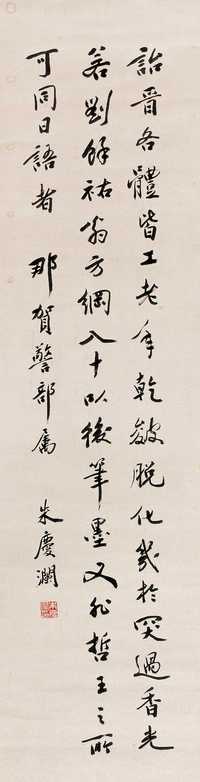 詒晋各體皆工老年乾皴脱化幾於突過香光
若劉錢祐翁方綱八十以後筆墨又非哲王之所
可同日語者 那賀警部属 朱慶瀾